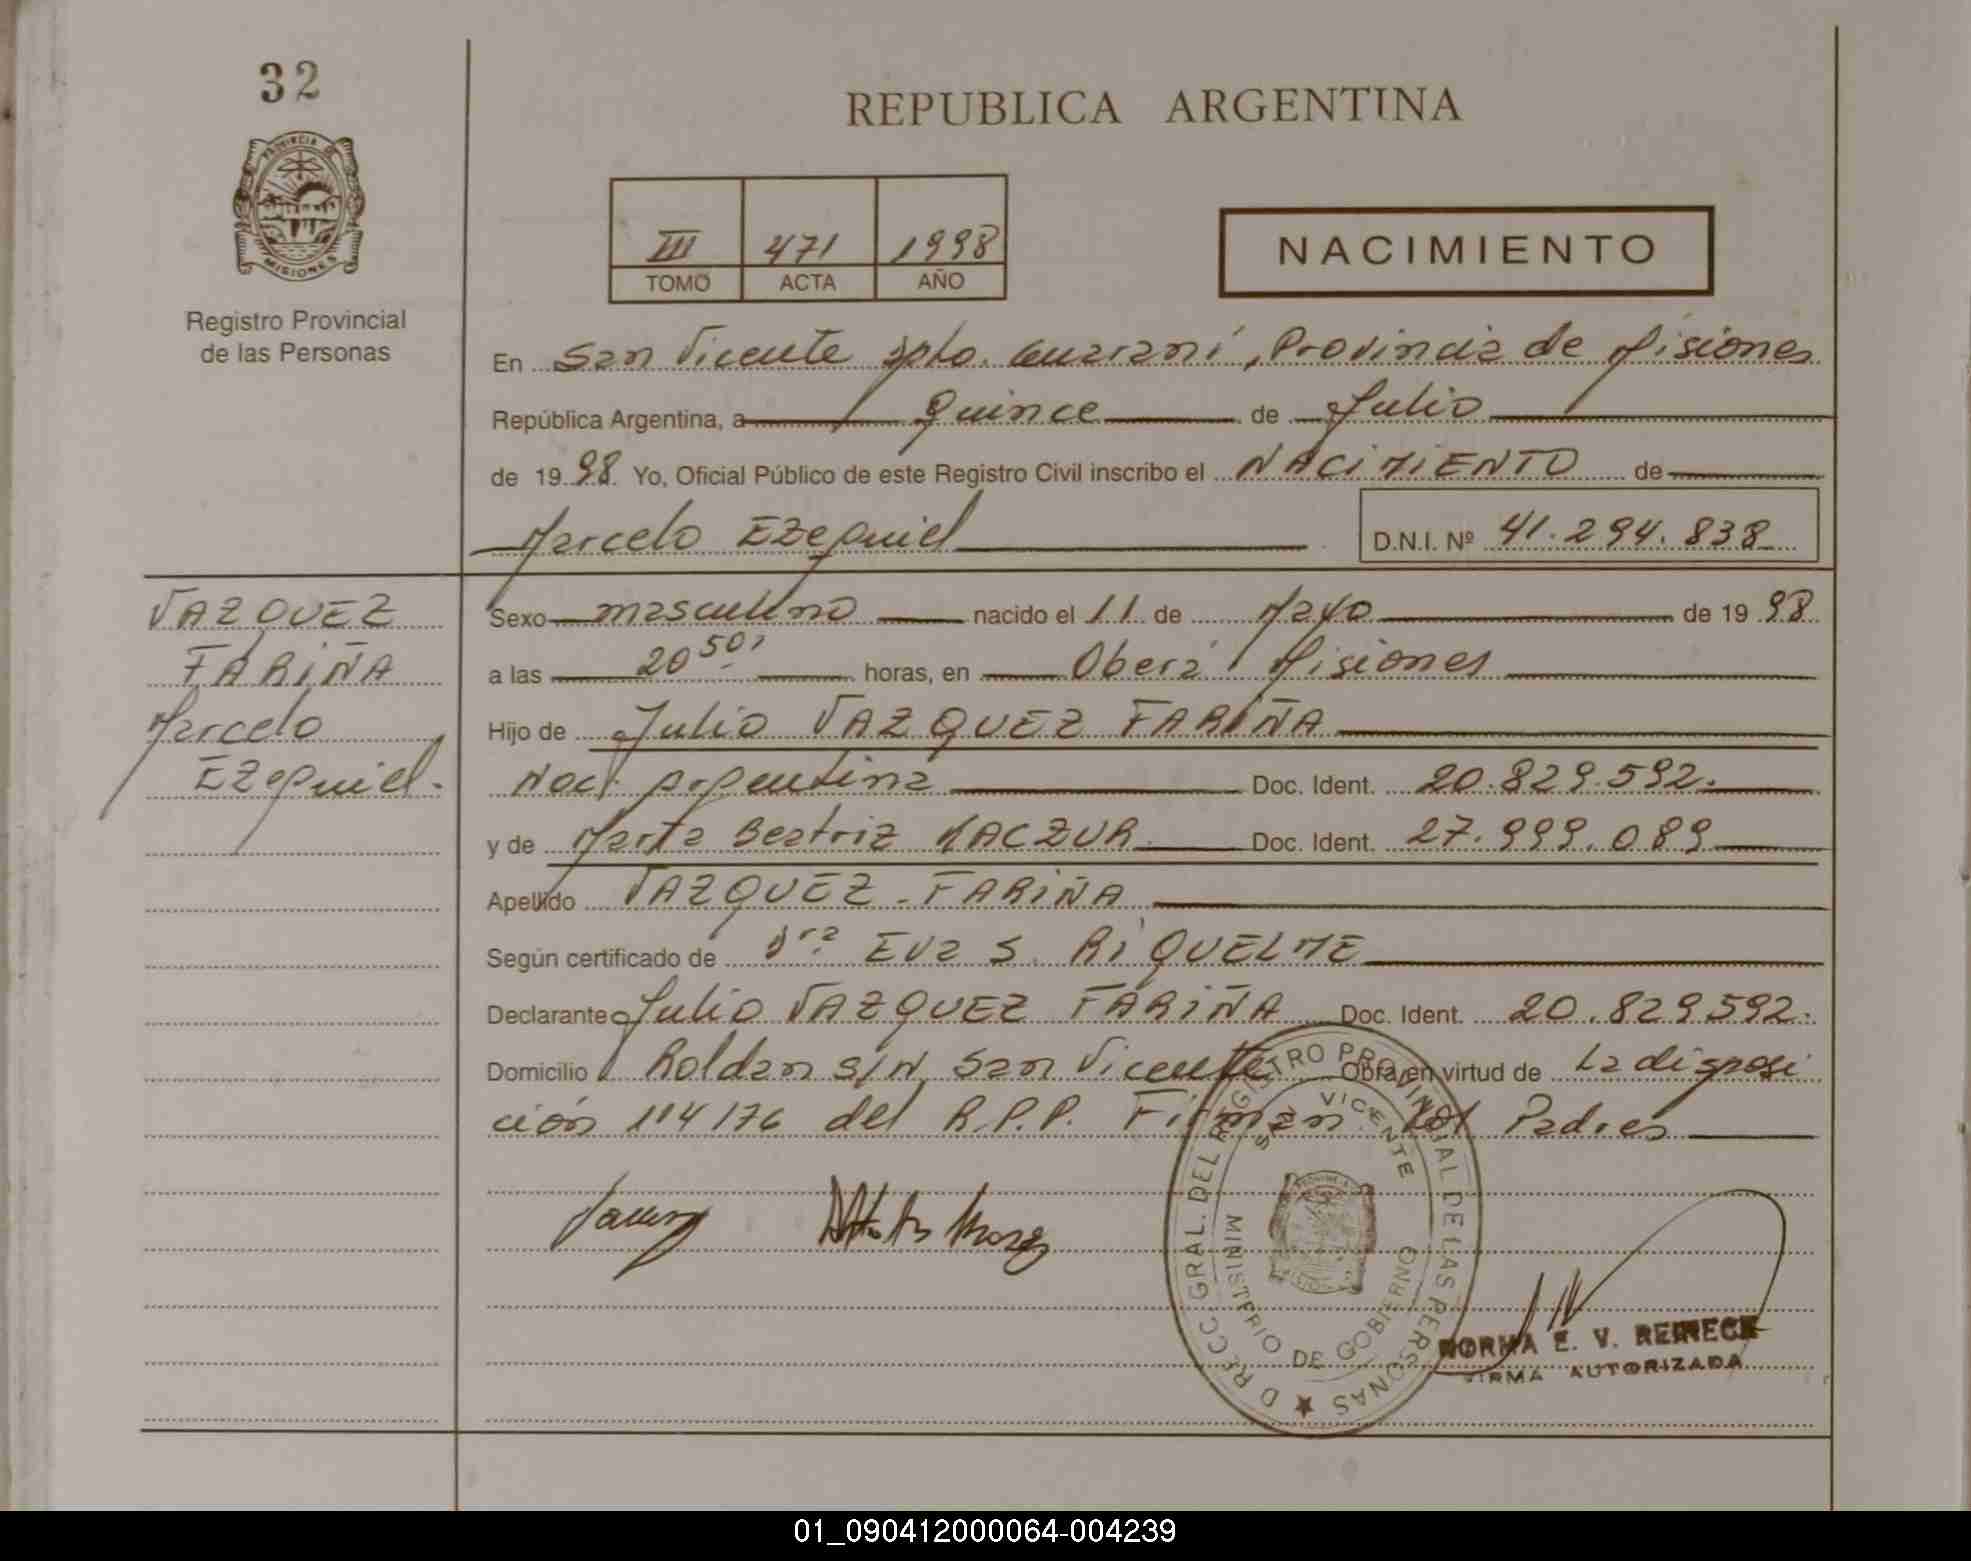 32
REPUBLICA ARGENTINA
PROVINCIA DE
MISIONES
Registro Provincial
de las Personas
III 471 1998
TOMO ACTA AÑO
NACIMIENTO
En San Vicente Dpto. Guaraní, Provincia de Misiones
República Argentina, a Quince de Julio
de 1998 Yo, Oficial Público de este Registro Civil inscribo el NACIMIENTO de
Marcelo Ezequiel D.N.I. Nº 41.294.838
VAZQUEZ
FARIÑA
Marcelo
Ezequiel.
Sexo masculino nacido el 11 de Mayo de 1998
a las 20 50' horas, en Oberá Misiones
Hijo de Julio VAZQUEZ FARIÑA
Nac. Argentina Doc. Ident. 20.829.592.
y de Marta Beatriz Doc. Ident. 27.999.089
Apellido VAZQUEZ-FARIÑA
Según certificado de Dra Eva S. RIQUELME
Declarante Julio VAZQUEZ FARIÑA Doc. Ident. 20.829592.
Domicilio Roldan S/N San Vicente Obra en virtud de La disposi
ción 114/76 del R.P.P. Firman los Padres
GRAL. DEL REGISTRO PROVINCIAL DE LAS PERSONAS
VICENTE
MINISTERIO DE GOBIERNO
NORMA E. V. REINECK
FIRMA AUTORIZADA
01_090412000064-004239